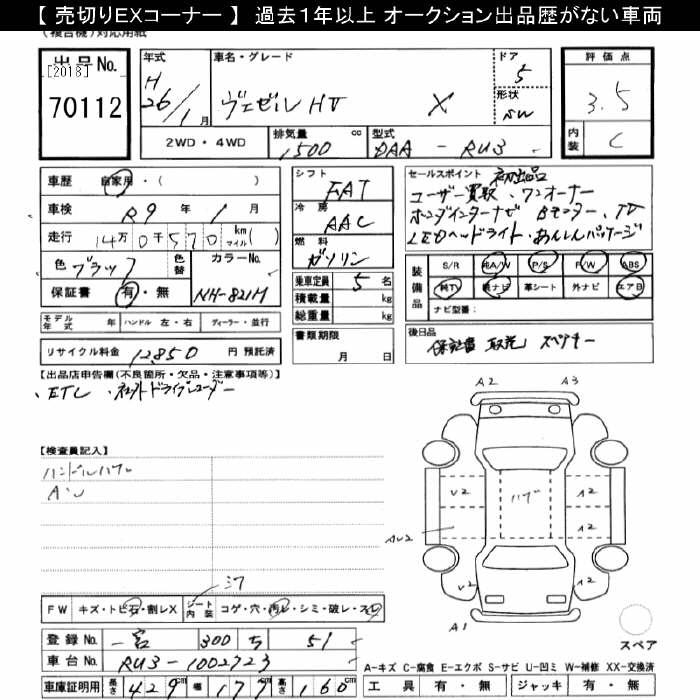 【 売切りEXコーナー 】 過去１年以上 オークション出品歴がない車両
(複合機)対応用紙
出品No.
[2018]
70112
年式
H
26/1月
車名・グレード
ヴェゼル HV X
ドア
5
形状
SW
評価点
3.5
内装
C
2WD・4WD
排気量
1500 cc
型式
DAA - RU3
車歴 自家用・( )
車検 R9 年 1 月
走行 14万0千570 km マイル( )
色 ブラック
色替
カラーNo.
NH-821M
保証書 有・無
シフト
FAT
冷房
AAC
燃料
ガソリン
乗車定員 5 名
積載量 kg
総重量 kg
セールスポイント 初出品
ユーザー買取、ワンオーナー
ホンダインターナビ Bモニター、TV
LEDヘッドライト・あんしんパッケージ
装備品
S/R 純A/W P/S P/W ABS
純TV 純ナビ 革シート 外ナビ エアB
ナビ型番:
モデル年式 年 ハンドル 左・右 ディーラー・並行
リサイクル料金 12,850 円 預託済
書類期限
月 日
後日品
保証書 取説 スペアキー
【出品店申告欄(不良箇所・欠品・注意事項等)】
・ETC ・社外ドライブレコーダー
【検査員記入】
ハンドルハゲ
A・U
A2
A3
U2
ハゲ
A2
A2
AU2
A2
A1
スペア
シワ
FW キズ・トビ石・割レX
シート内装 コゲ・穴・汚レ・シミ・破レ・スレ
登録No. 一宮 300 ち 51
車台No. RU3-1002723
車庫証明用 長さ 429 cm 幅 177 cm 高さ 160 cm
A-キズ C-腐食 E-エクボ S-サビ U-凹ミ W-補修 XX-交換済
工具 有・無 ジャッキ 有・無